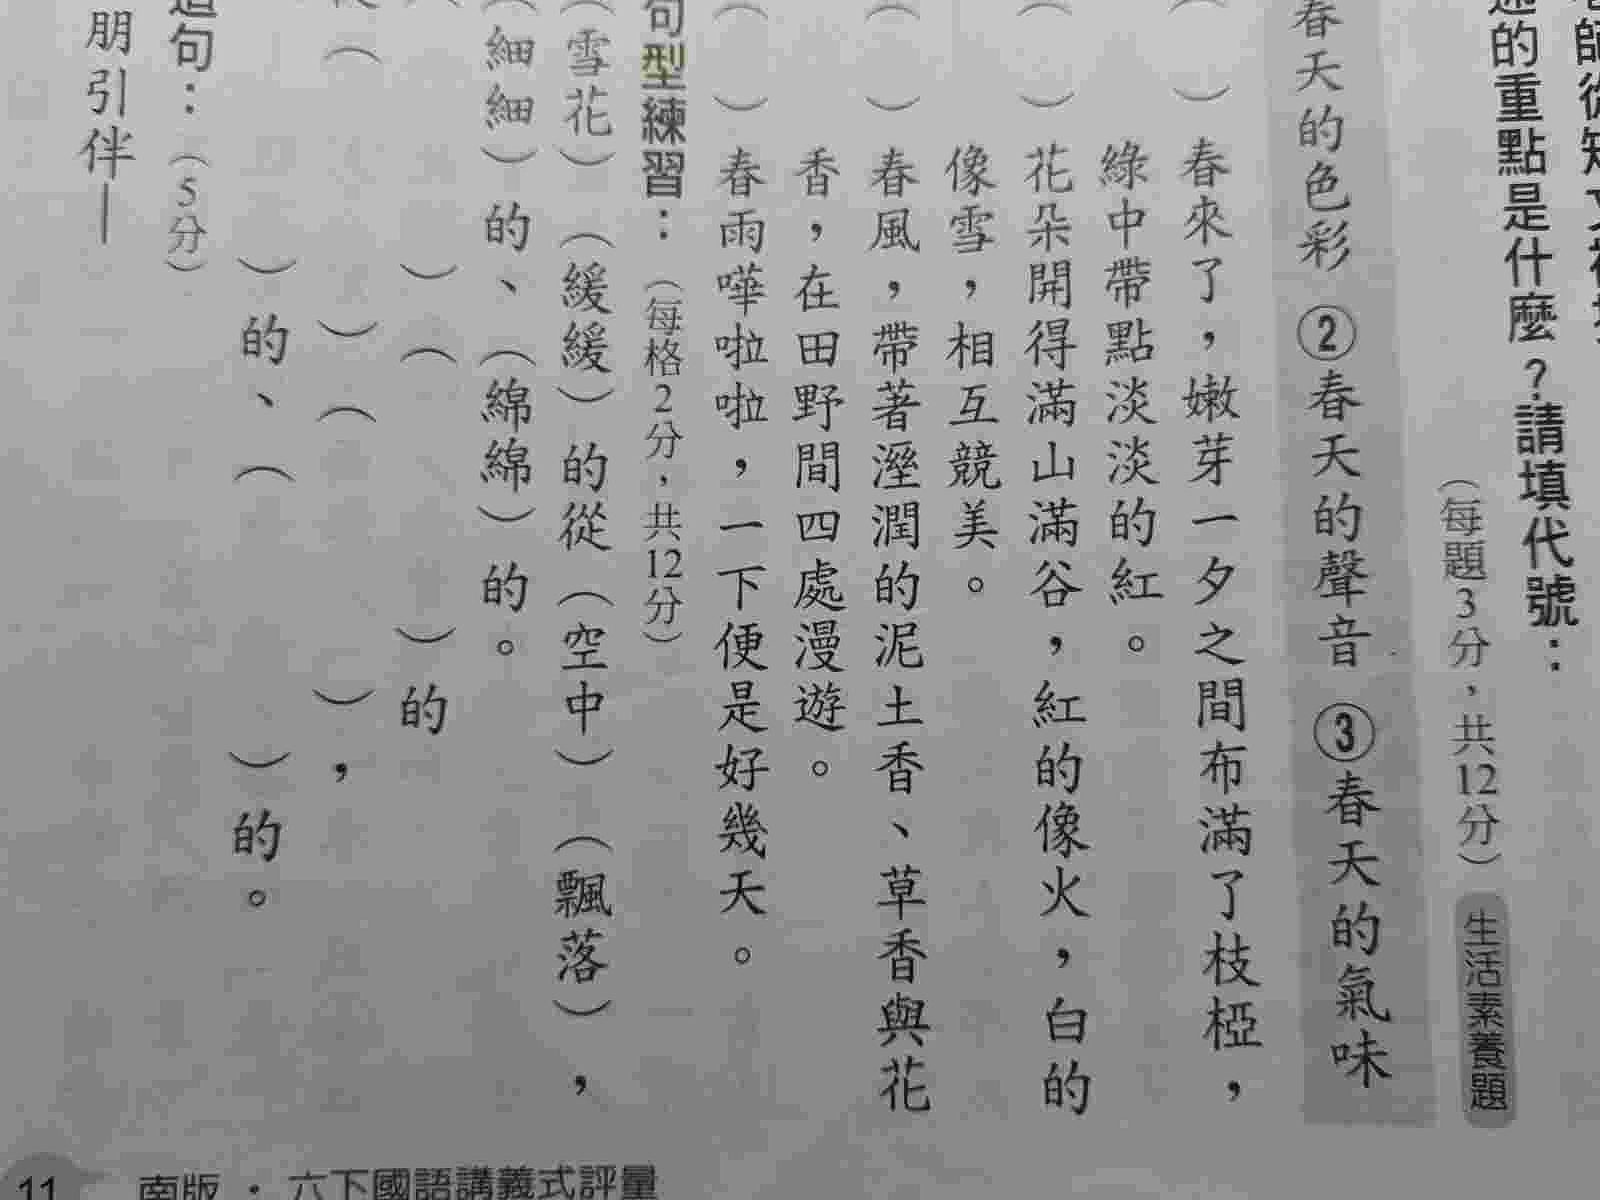 老師從短文
述的重點是什麼？請填代號：
（每題3分，共12分）生活素養題
春天的色彩 ②春天的聲音 ③春天的氣味
（　）春來了，嫩芽一夕之間布滿了枝椏，
綠中帶點淡淡的紅。
（　）花朵開得滿山滿谷，紅的像火，白的
像雪，相互競美。
（　）春風，帶著溼潤的泥土香、草香與花
香，在田野間四處漫遊。
（　）春雨嘩啦啦啦，一下便是好幾天。
句型練習：（每格2分，共12分）
（雪花）（緩緩）的從（空中）（飄落），
（細細）的、（綿綿）的。
（　）（　）的
（　）（　），
（　）的、（　）的。
造句：（5分）
朋引伴—
11 南版・六下國語講義式評量